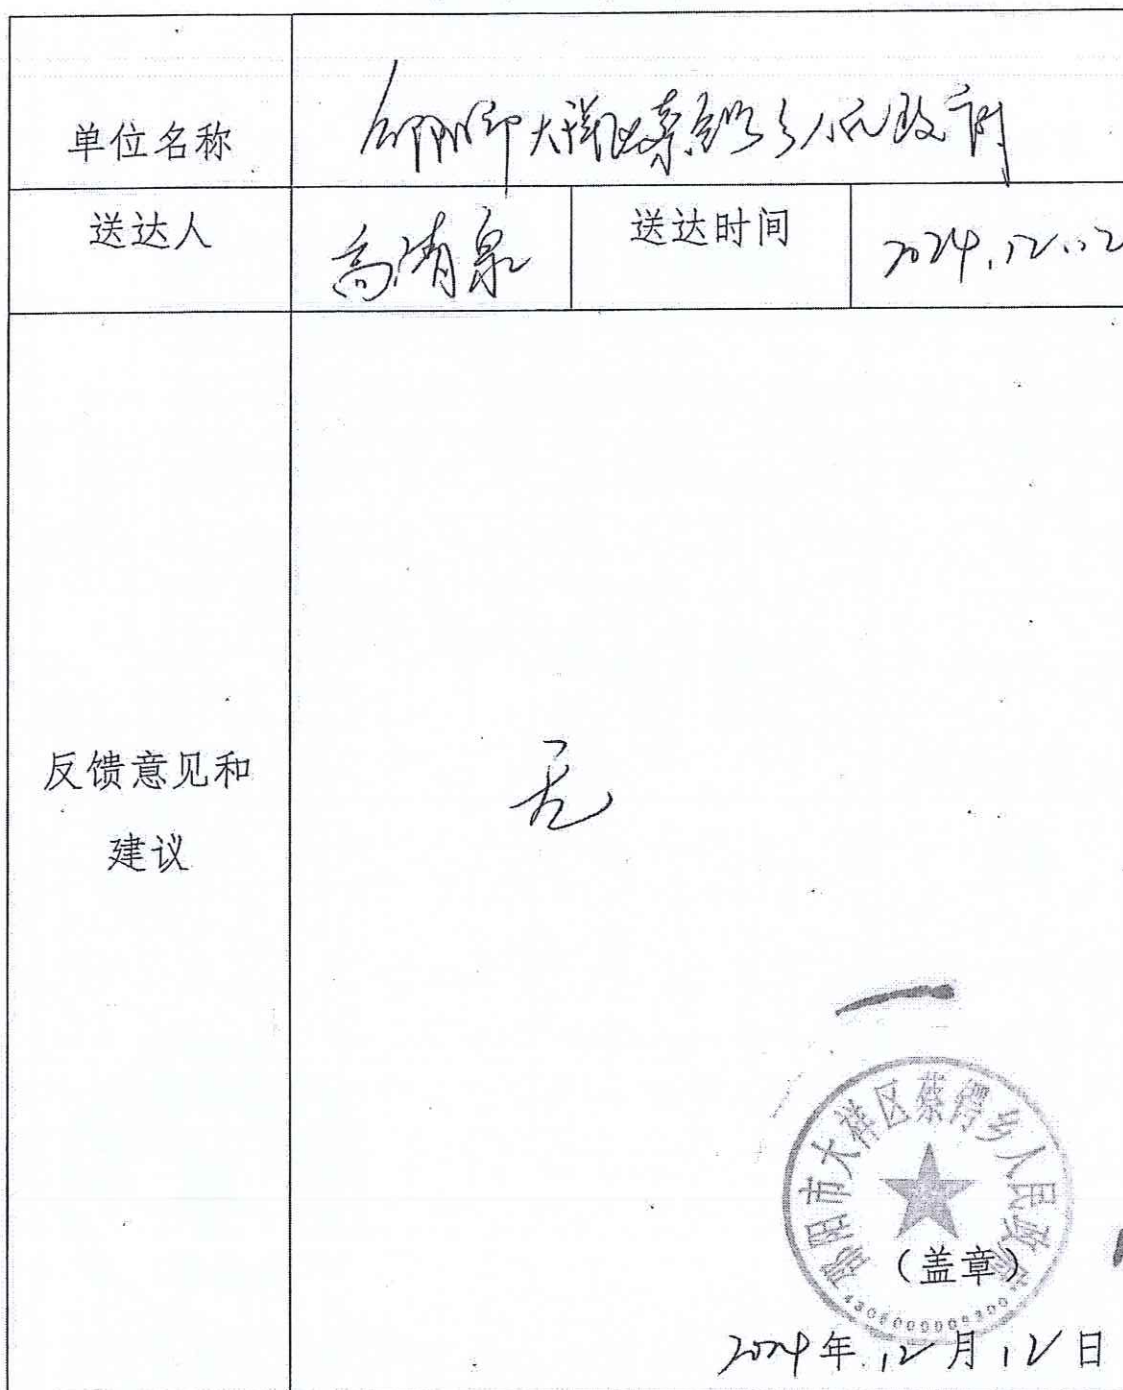 单位名称 邵阳市大祥区蔡锷乡人民政府
送达人 高清泉 送达时间 2024.12.12
反馈意见和
建议
无
邵阳市大祥区蔡锷乡人民政府
（盖章）
2024年12月12日